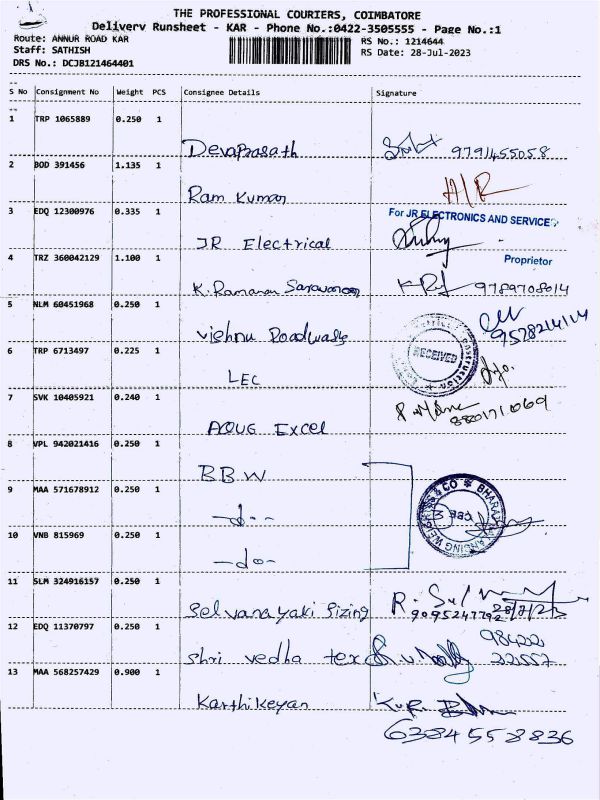 THE PROFESSIONAL COURIERS, COIMBATORE
Delivery Runsheet - KAR - Phone No.:0422-3505555 - Page No.:1
Route: ANNUR ROAD KAR
RS No.: 1214644
Staff: SATHISH
RS Date: 28-Jul-2023
DRS No.: DCJB121464401
S No Consignment No Weight PCS Consignee Details Signature
1 TRP 1065889 0.250 1
Devaprasath 9791455058
2 BOD 391456 1.135 1
Ram Kumar H/R
3 EDQ 12300976 0.335 1
For JR ELECTRONICS AND SERVICE
JR Electrical
Proprietor
4 TRZ 360042129 1.100 1
K. Ramanan Saravanan 9789708014
5 NLM 60451968 0.250 1
Vishnu Roadways 9528214114
6 TRP 6713497 0.225 1
RECEIVED
LEC
7 SVK 10405921 0.240 1
Aqua Excel 880171069
8 VPL 942021416 0.250 1
BBW
9 MAA 571678912 0.250 1
-do-
10 VNB 815969 0.250 1
-do-
11 SLM 324916157 0.250 1
Selvanayaki Sizing 9095247792
12 EDQ 11370797 0.250 1
Shri vedha tex 98422 22557
13 MAA 568257429 0.900 1
Karthikeyan
6384558836